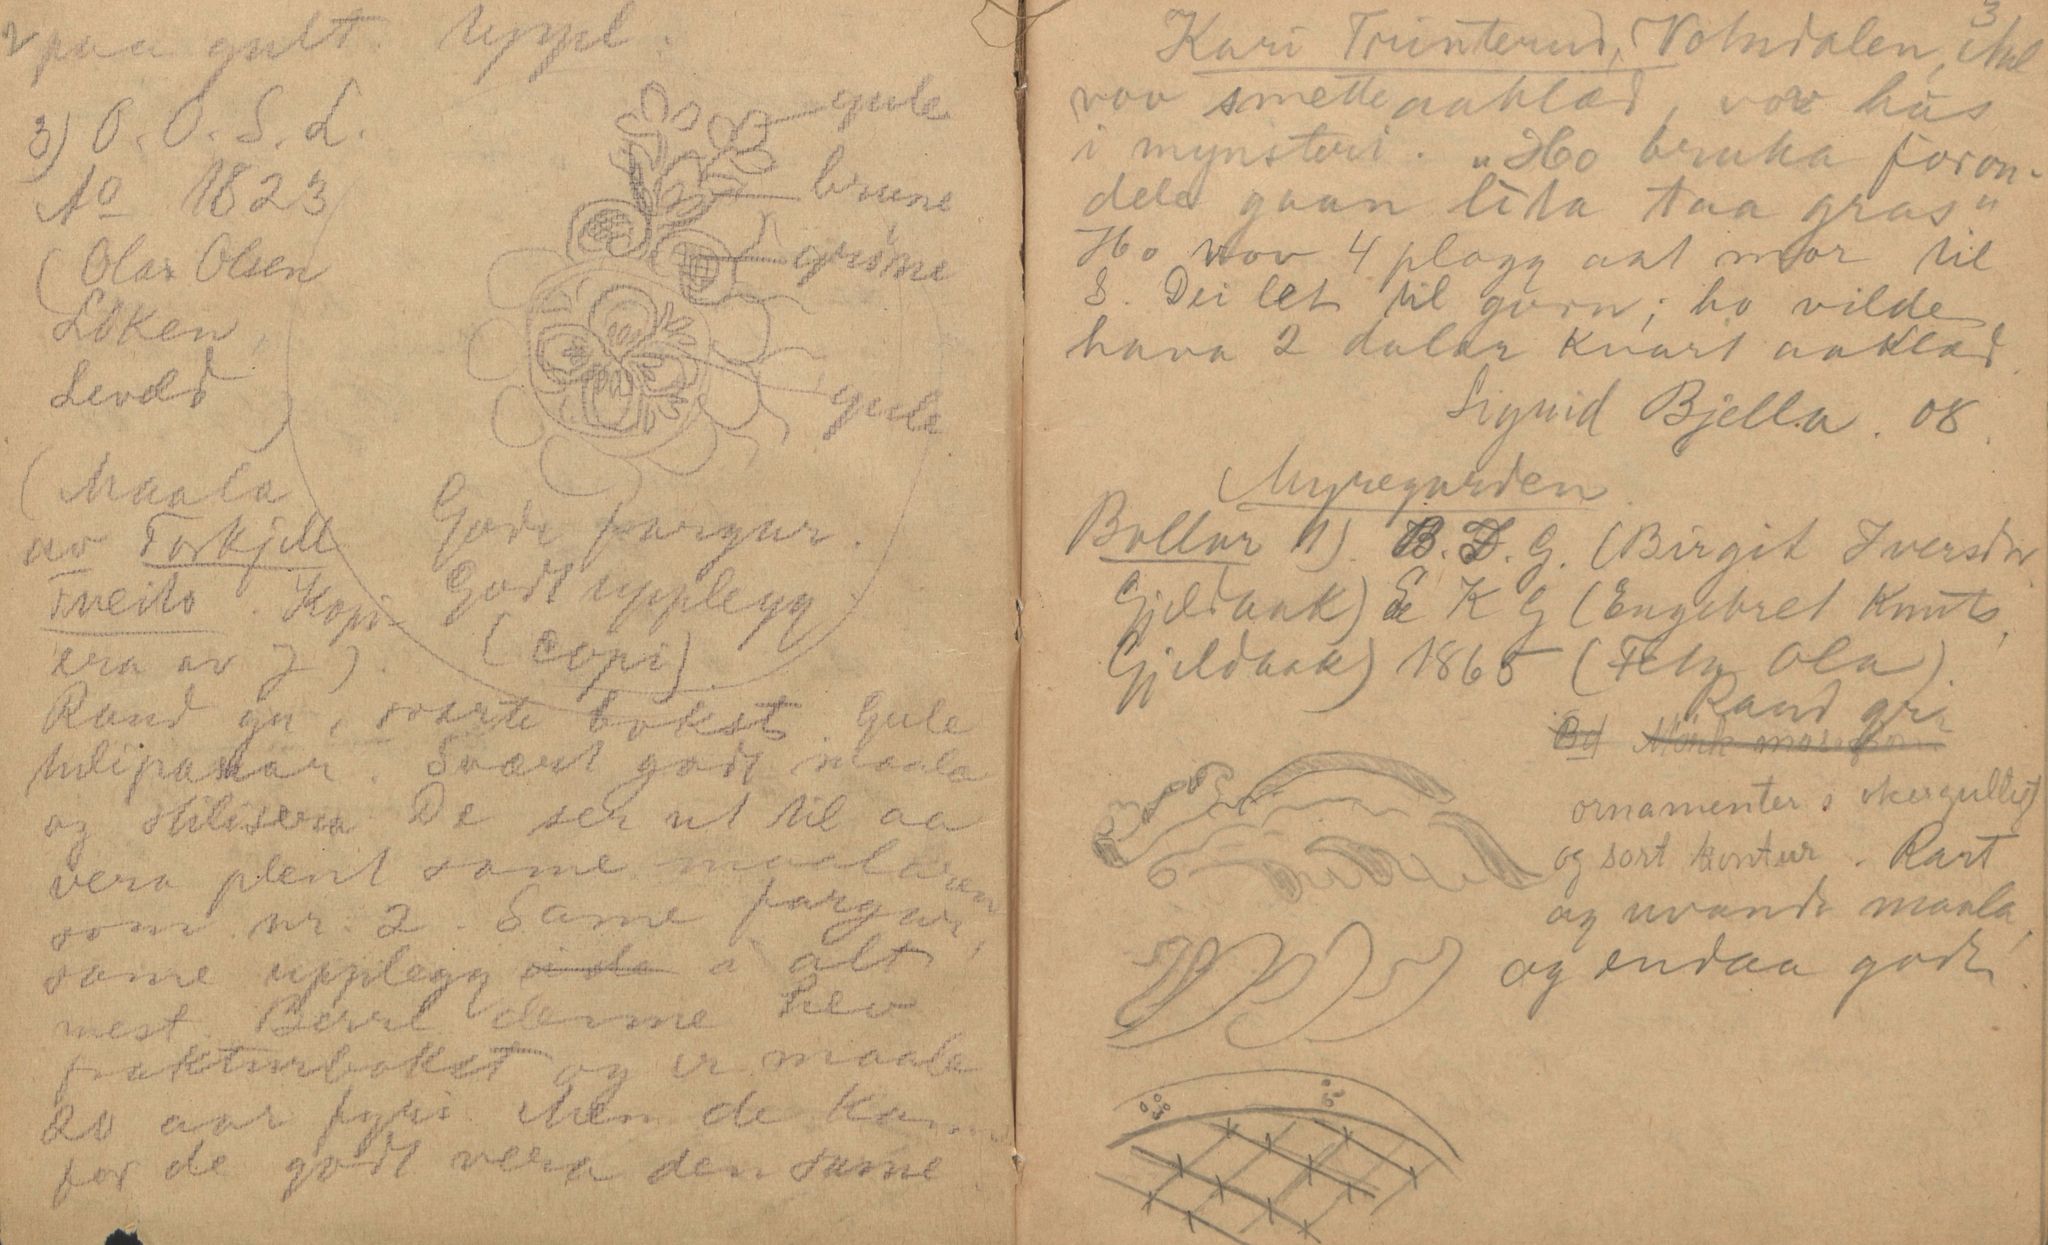 2 paa gult. Uppl.
3) O. O. S. L.
Ao 1823
(Ola Olsen
Løken,
Levold
gule
brune
grøne
gule
(Maala
av Torkjell
Tveito. Kopi-
era av J).
Gode fargur.
Godt upplegg
(copi)
Rand gu, svarte bokst. Gule
tulipanar. Svært godt maala
og stilisera De ser ut til aa
vera plent same maalaren
som nr. 2. Same fargur,
same upplegg i alt
mest. Berre denne hev
frakturbokst og er maala
20 aar fyri. Men de kan
for de godt vera den same
3
Kari Trinterud, Votndalen, Aal
vov smetteaaklæd, vov hus
i mynsteri. "Ho bruka foron-
dele gaan lita taa gras"
Ho vov 4 plagg aat mor til
S. Dei let til garn; ho vilde
hava 2 dalar kvart aaklæd.
Sigrid Bjella. 08.
Myregarden
Bollar 1). B. I. G. (Birgit Iversdr.
Gjeldaak) E K G (Engebret Knuts,
Gjeldaak) 1865 (Felg Ola).
Rand gr
Bd Mørk
ornamenter i
og sort kontur. Rart
og uvande maala,
og endaa godt.